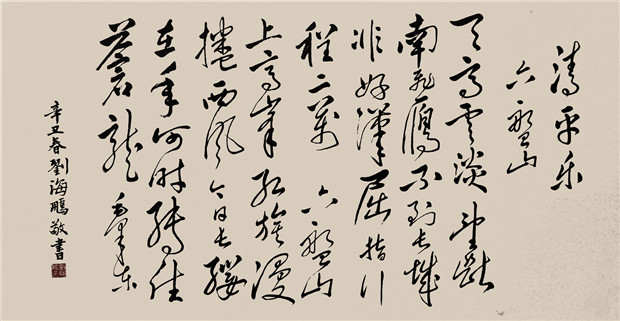 清平乐
六盘山
天高云淡望断
南飞雁不到长城
非好漢屈指行
程二萬六盘山
上高峰红旗漫
捲西风今日长缨
在手何时缚住
蒼龙毛泽东
辛丑春劉海鵬敬書